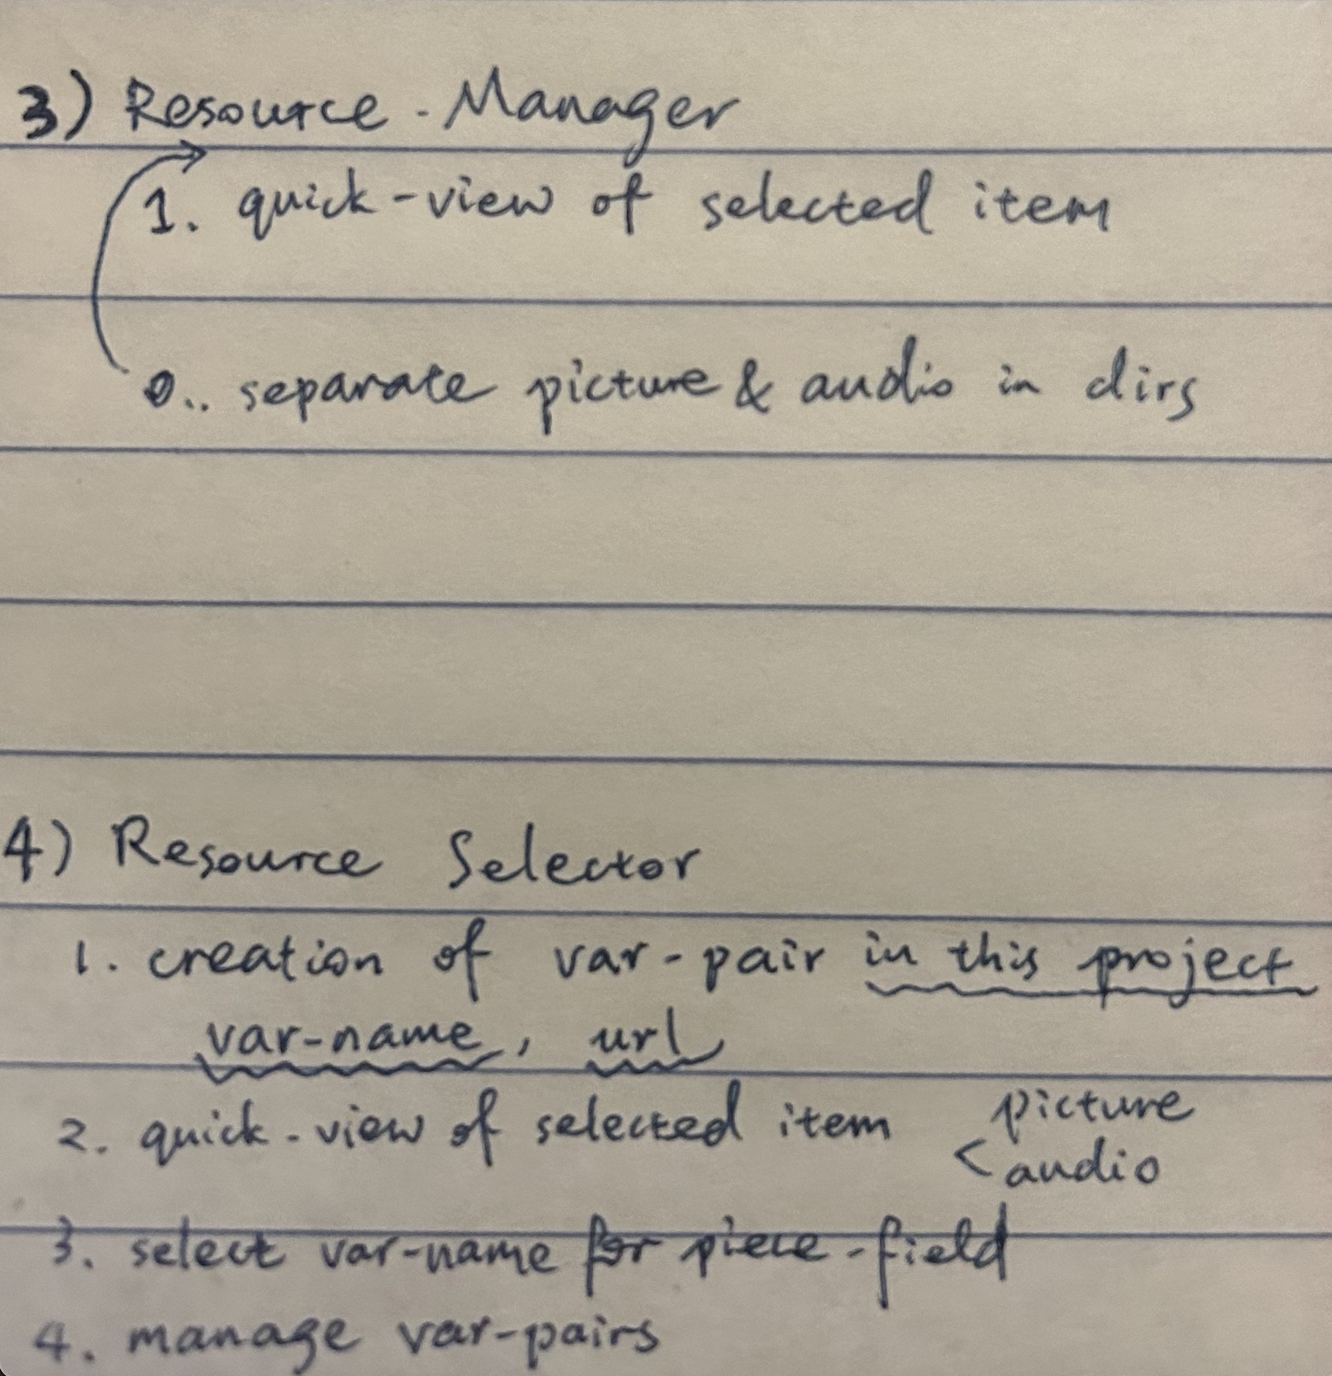 3) Resource-Manager
1. quick-view of selected item
0.. separate picture & audio in dirs
4) Resource Selector
1. creation of var-pair in this project
var-name, url
2. quick-view of selected item < picture
audio
3. select var-name for piece-field
4. manage var-pairs